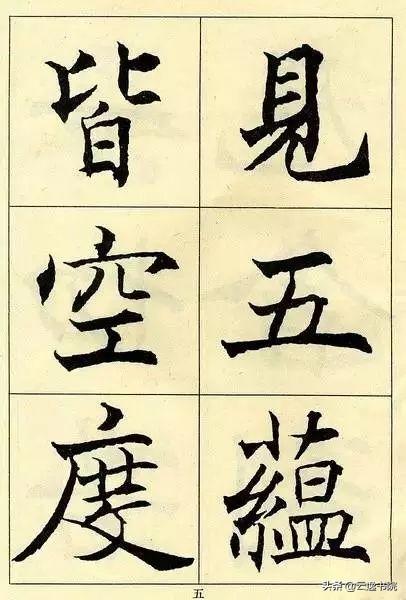 見五蘊
皆空度
五
头条@云逸书院